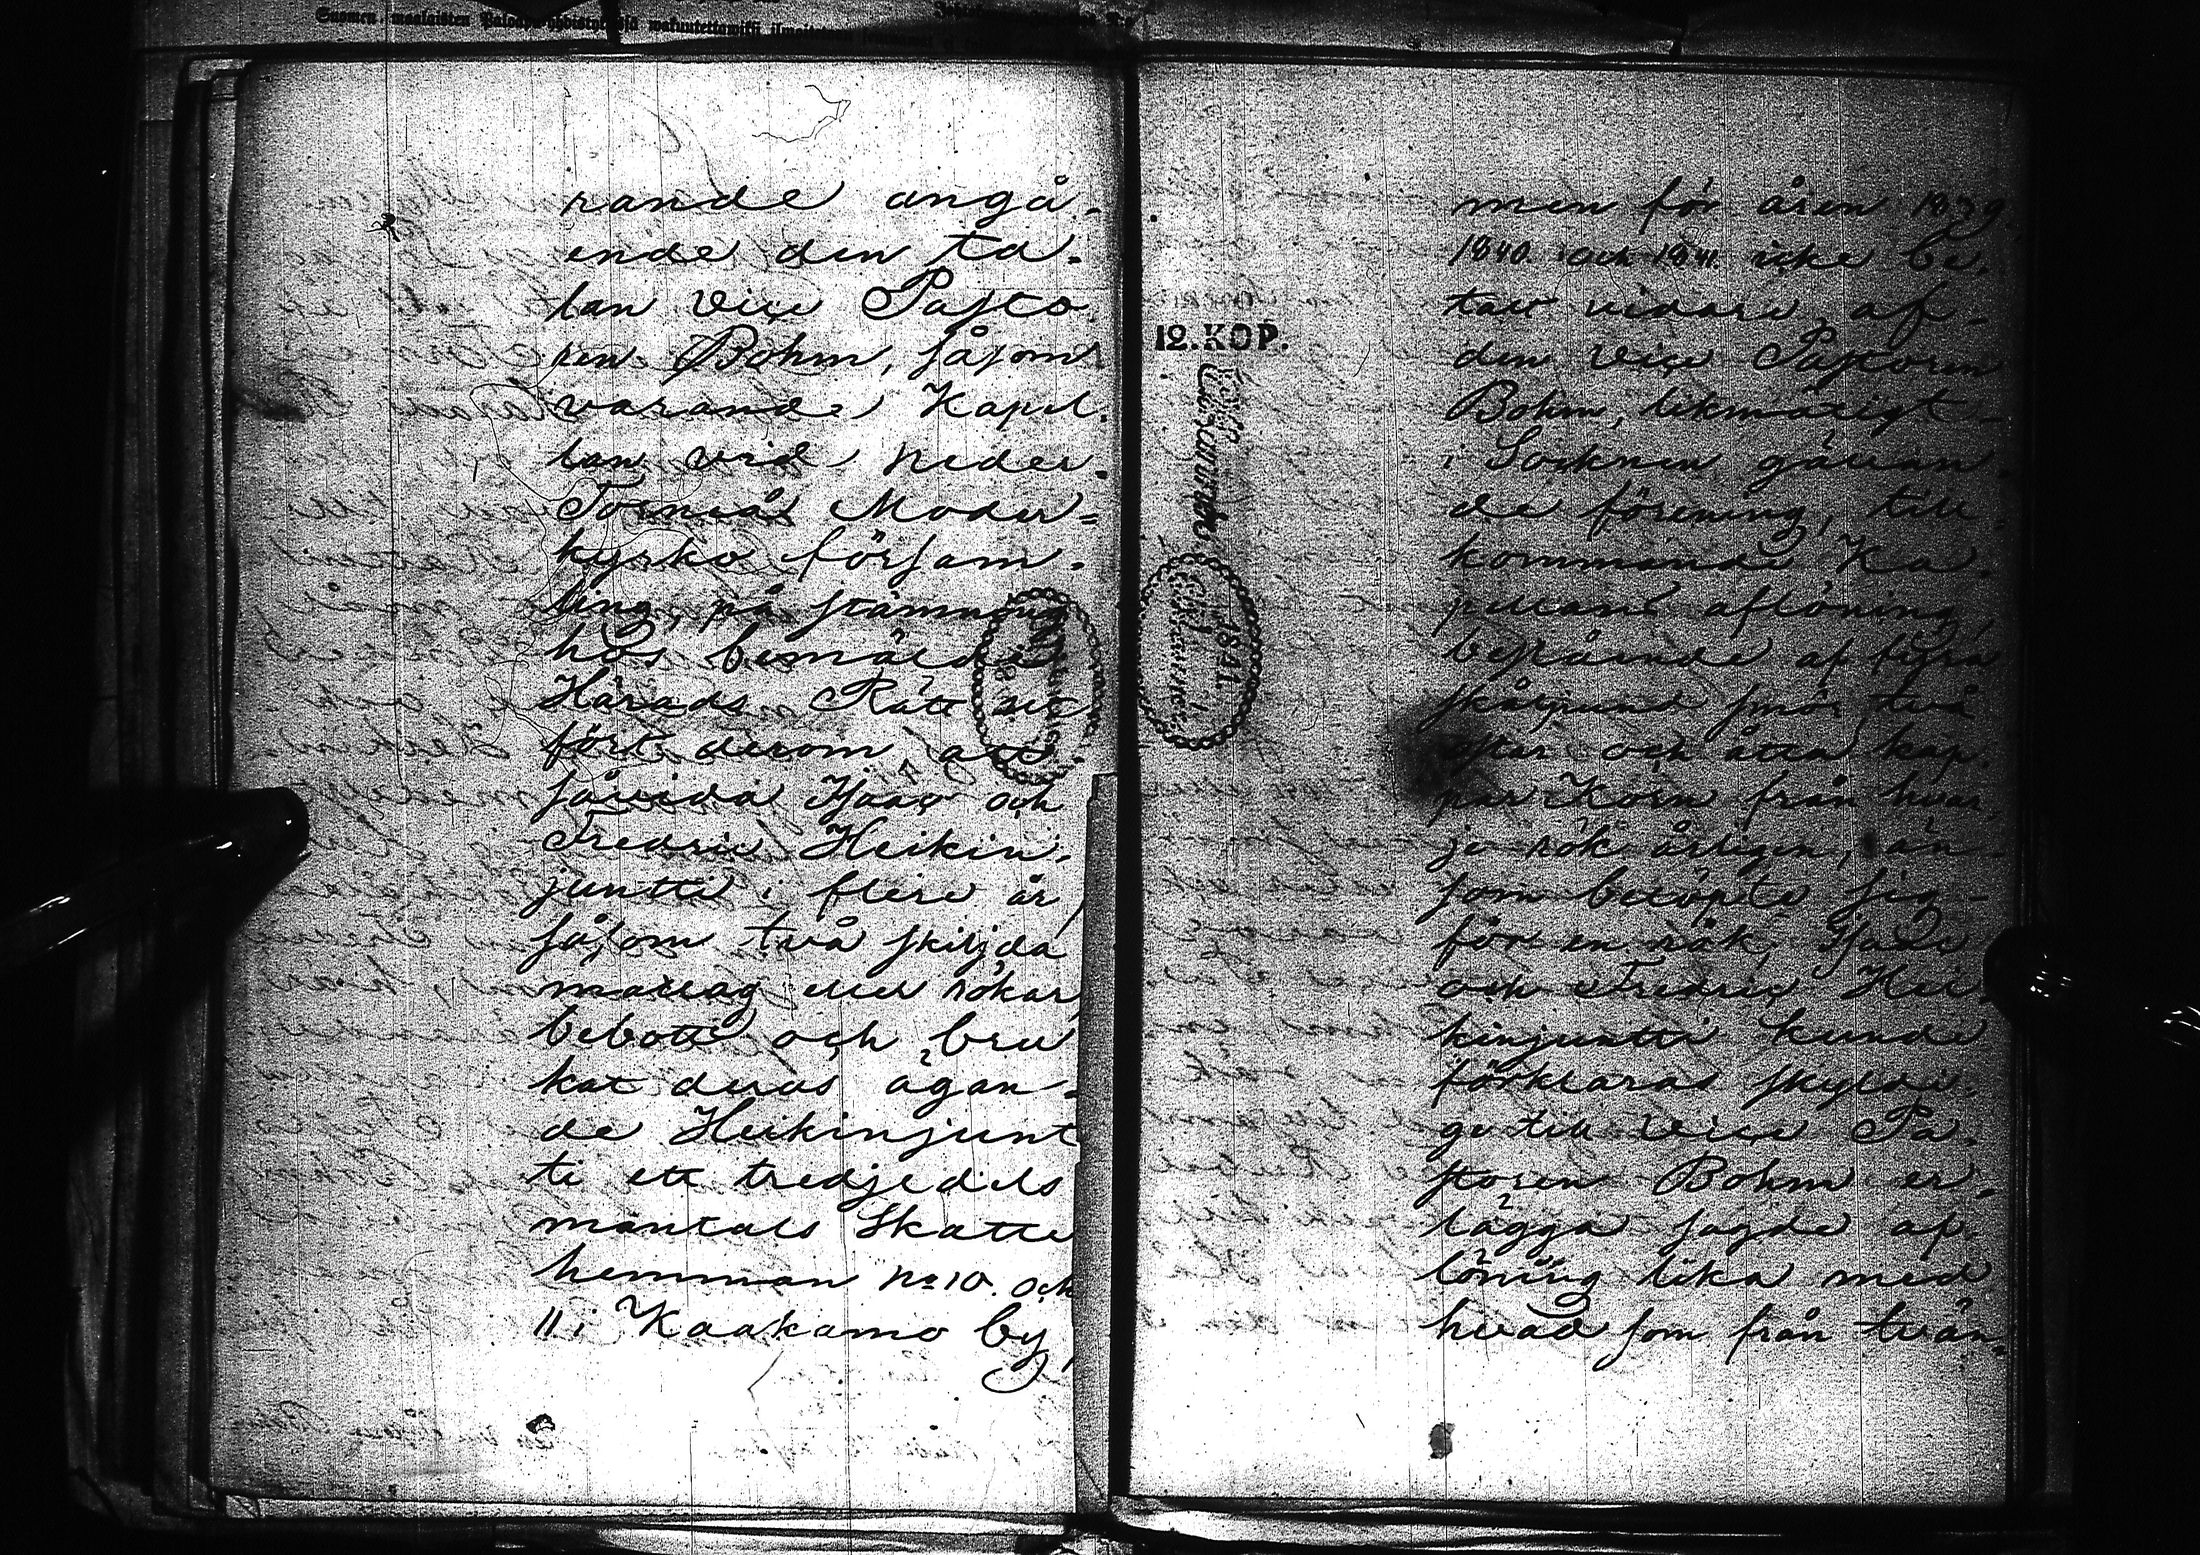 Suomen maalaisten Paloapuyhdistyksessä wakuutettawilli ilmoitetaan
rande angå-
ende den ta-
lan Vice Pasto
ren Bohm, såsom
varande Kapel-
lan vid Neder-
Torneå Moder-
kyrko försam-
ling, på stämning
hos bemälde
Härads Rätt ut-
fört derom att
såvida Isaac och
Fredric Heikin-
juntti i flere år
såsom två skiljda
matlag eller rökar
bebott och bru
kat deras ägan-
de Heikinjunt
ti ett tredjedels
mantals Skatte
hemman No 10. och
11 i Kaakamo by,
12.KOP.
1841.
men för åren 1839
1840. och 1841. icke be-
talt vidare af-
den Vice Pastoren
Bohm, likmäsigt
i Socknen gällan-
de förening, till-
kommande Ka-
pellans aflöning,
bestående af fyra
skålpund smör, två
ostar och åtta kap-
par Korn från hvar
je rök årligen, än-
som belöpte sig
för en rök, Isac
och Fredric Hei-
kinjuntti kunde
förklaras skyldi-
ge till Vice Pa-
storen Bohm er-
lägga sagde af-
löning lika med
hvad som från tvän-